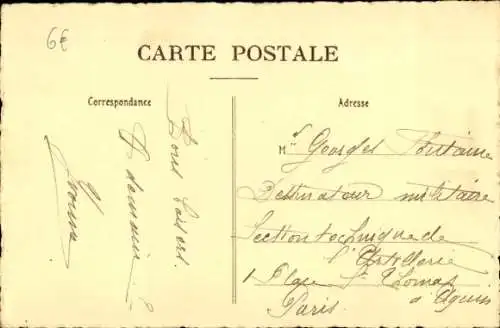 6€
CARTE POSTALE
Correspondance
Adresse
Bons baisers.
A demain
Yvonne
Mr Georges Fontaine
Dessinateur militaire
Section technique de
l'Artillerie
1 Place St Thomas
d'Aquin
Paris.